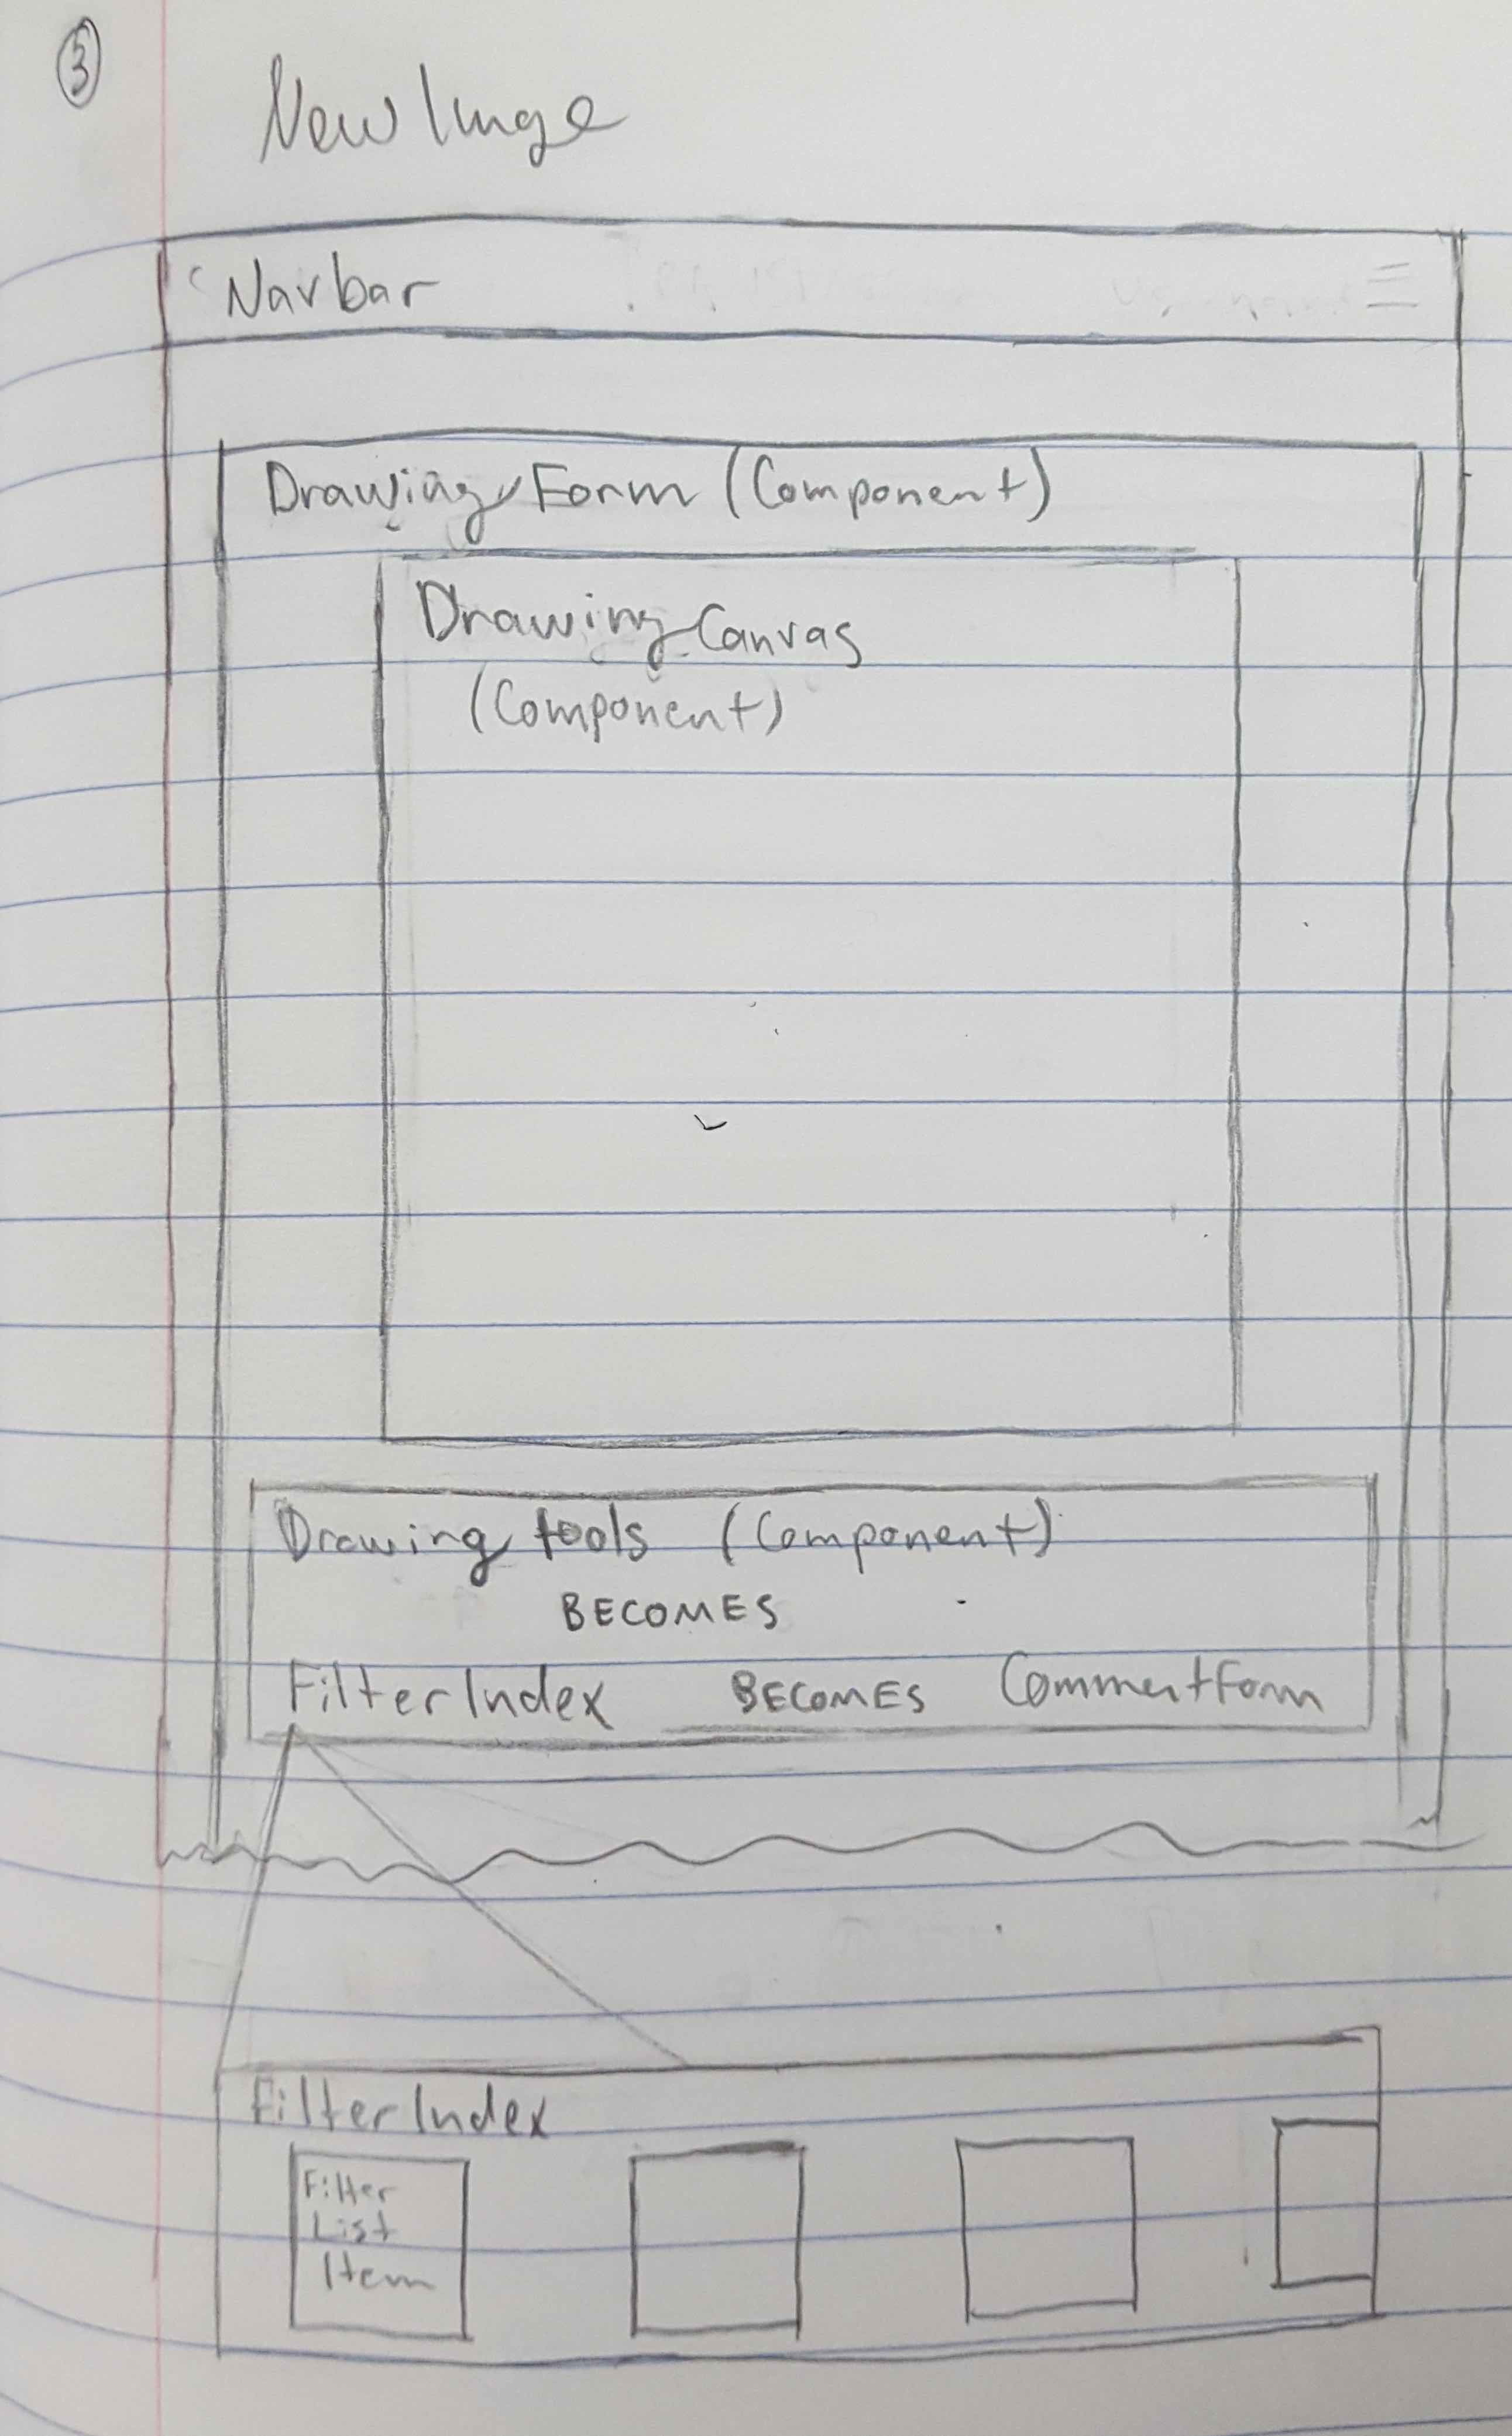 3
New Image
Navbar
Drawing Form (Component)
Drawing Canvas
(Component)
Drawing tools (Component)
BECOMES
FilterIndex BECOMES CommentForm
FilterIndex
Filter
List
Item